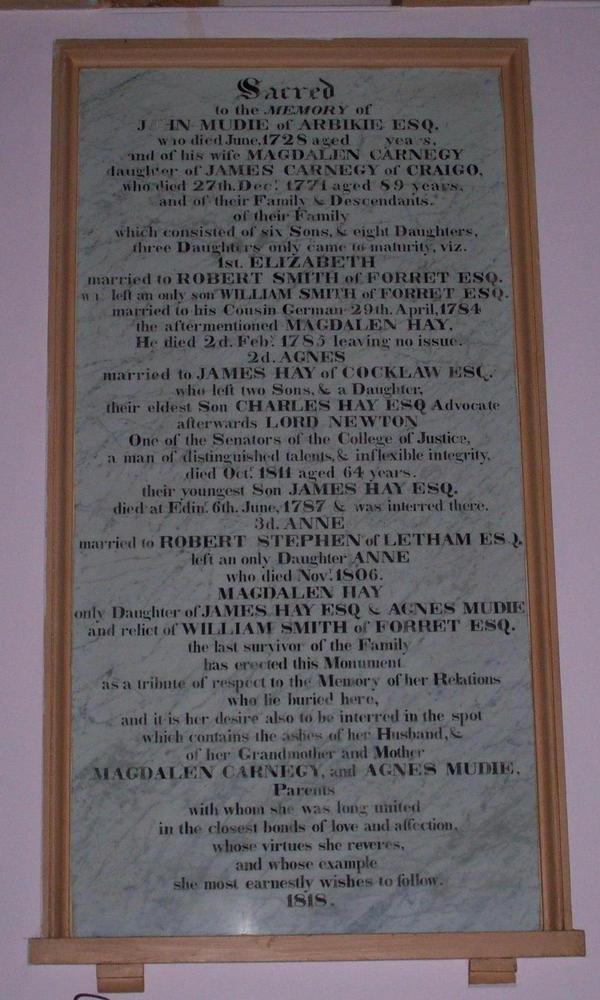 Sacred
to the MEMORY of
J HN MUDIE of ARBIKIE ESQ.
who died June, 1728 aged years,
and of his wife MAGDALEN CARNEGY
daughter of JAMES CARNEGY of CRAIGO,
who died 27th. Decr. 1771 aged 89 years,
and of their Family & Descendants.
of their Family
which consisted of six Sons, & eight Daughters,
three Daughters only came to maturity, viz.
1st. ELIZABETH
married to ROBERT SMITH of FORRET ESQ.
who left an only son WILLIAM SMITH of FORRET ESQ.
married to his Cousin German 29th. April, 1784
the aftermentioned MAGDALEN HAY,
He died 2d. Feby. 1785 leaving no issue.
2d. AGNES
married to JAMES HAY of COCKLAW ESQ.
who left two Sons, & a Daughter,
their eldest Son CHARLES HAY ESQ Advocate
afterwards LORD NEWTON
One of the Senators of the College of Justice,
a man of distinguished talents, & inflexible integrity,
died Octr. 1811 aged 64 years.
their youngest Son JAMES HAY ESQ.
died at Edinr. 6th. June, 1787 & was interred there.
3d. ANNE
married to ROBERT STEPHEN of LETHAM ESQ.
left an only Daughter ANNE
who died Novr. 1806.
MAGDALEN HAY
only Daughter of JAMES HAY ESQ & AGNES MUDIE
and relict of WILLIAM SMITH of FORRET ESQ.
the last survivor of the Family
has erected this Monument
as a tribute of respect to the Memory of her Relations
who lie buried here,
and it is her desire also to be interred in the spot
which contains the ashes of her Husband, &
of her Grandmother and Mother
MAGDALEN CARNEGY, and AGNES MUDIE,
Parents
with whom she was long united
in the closest bonds of love and affection,
whose virtues she reveres,
and whose example
she most earnestly wishes to follow.
1818.